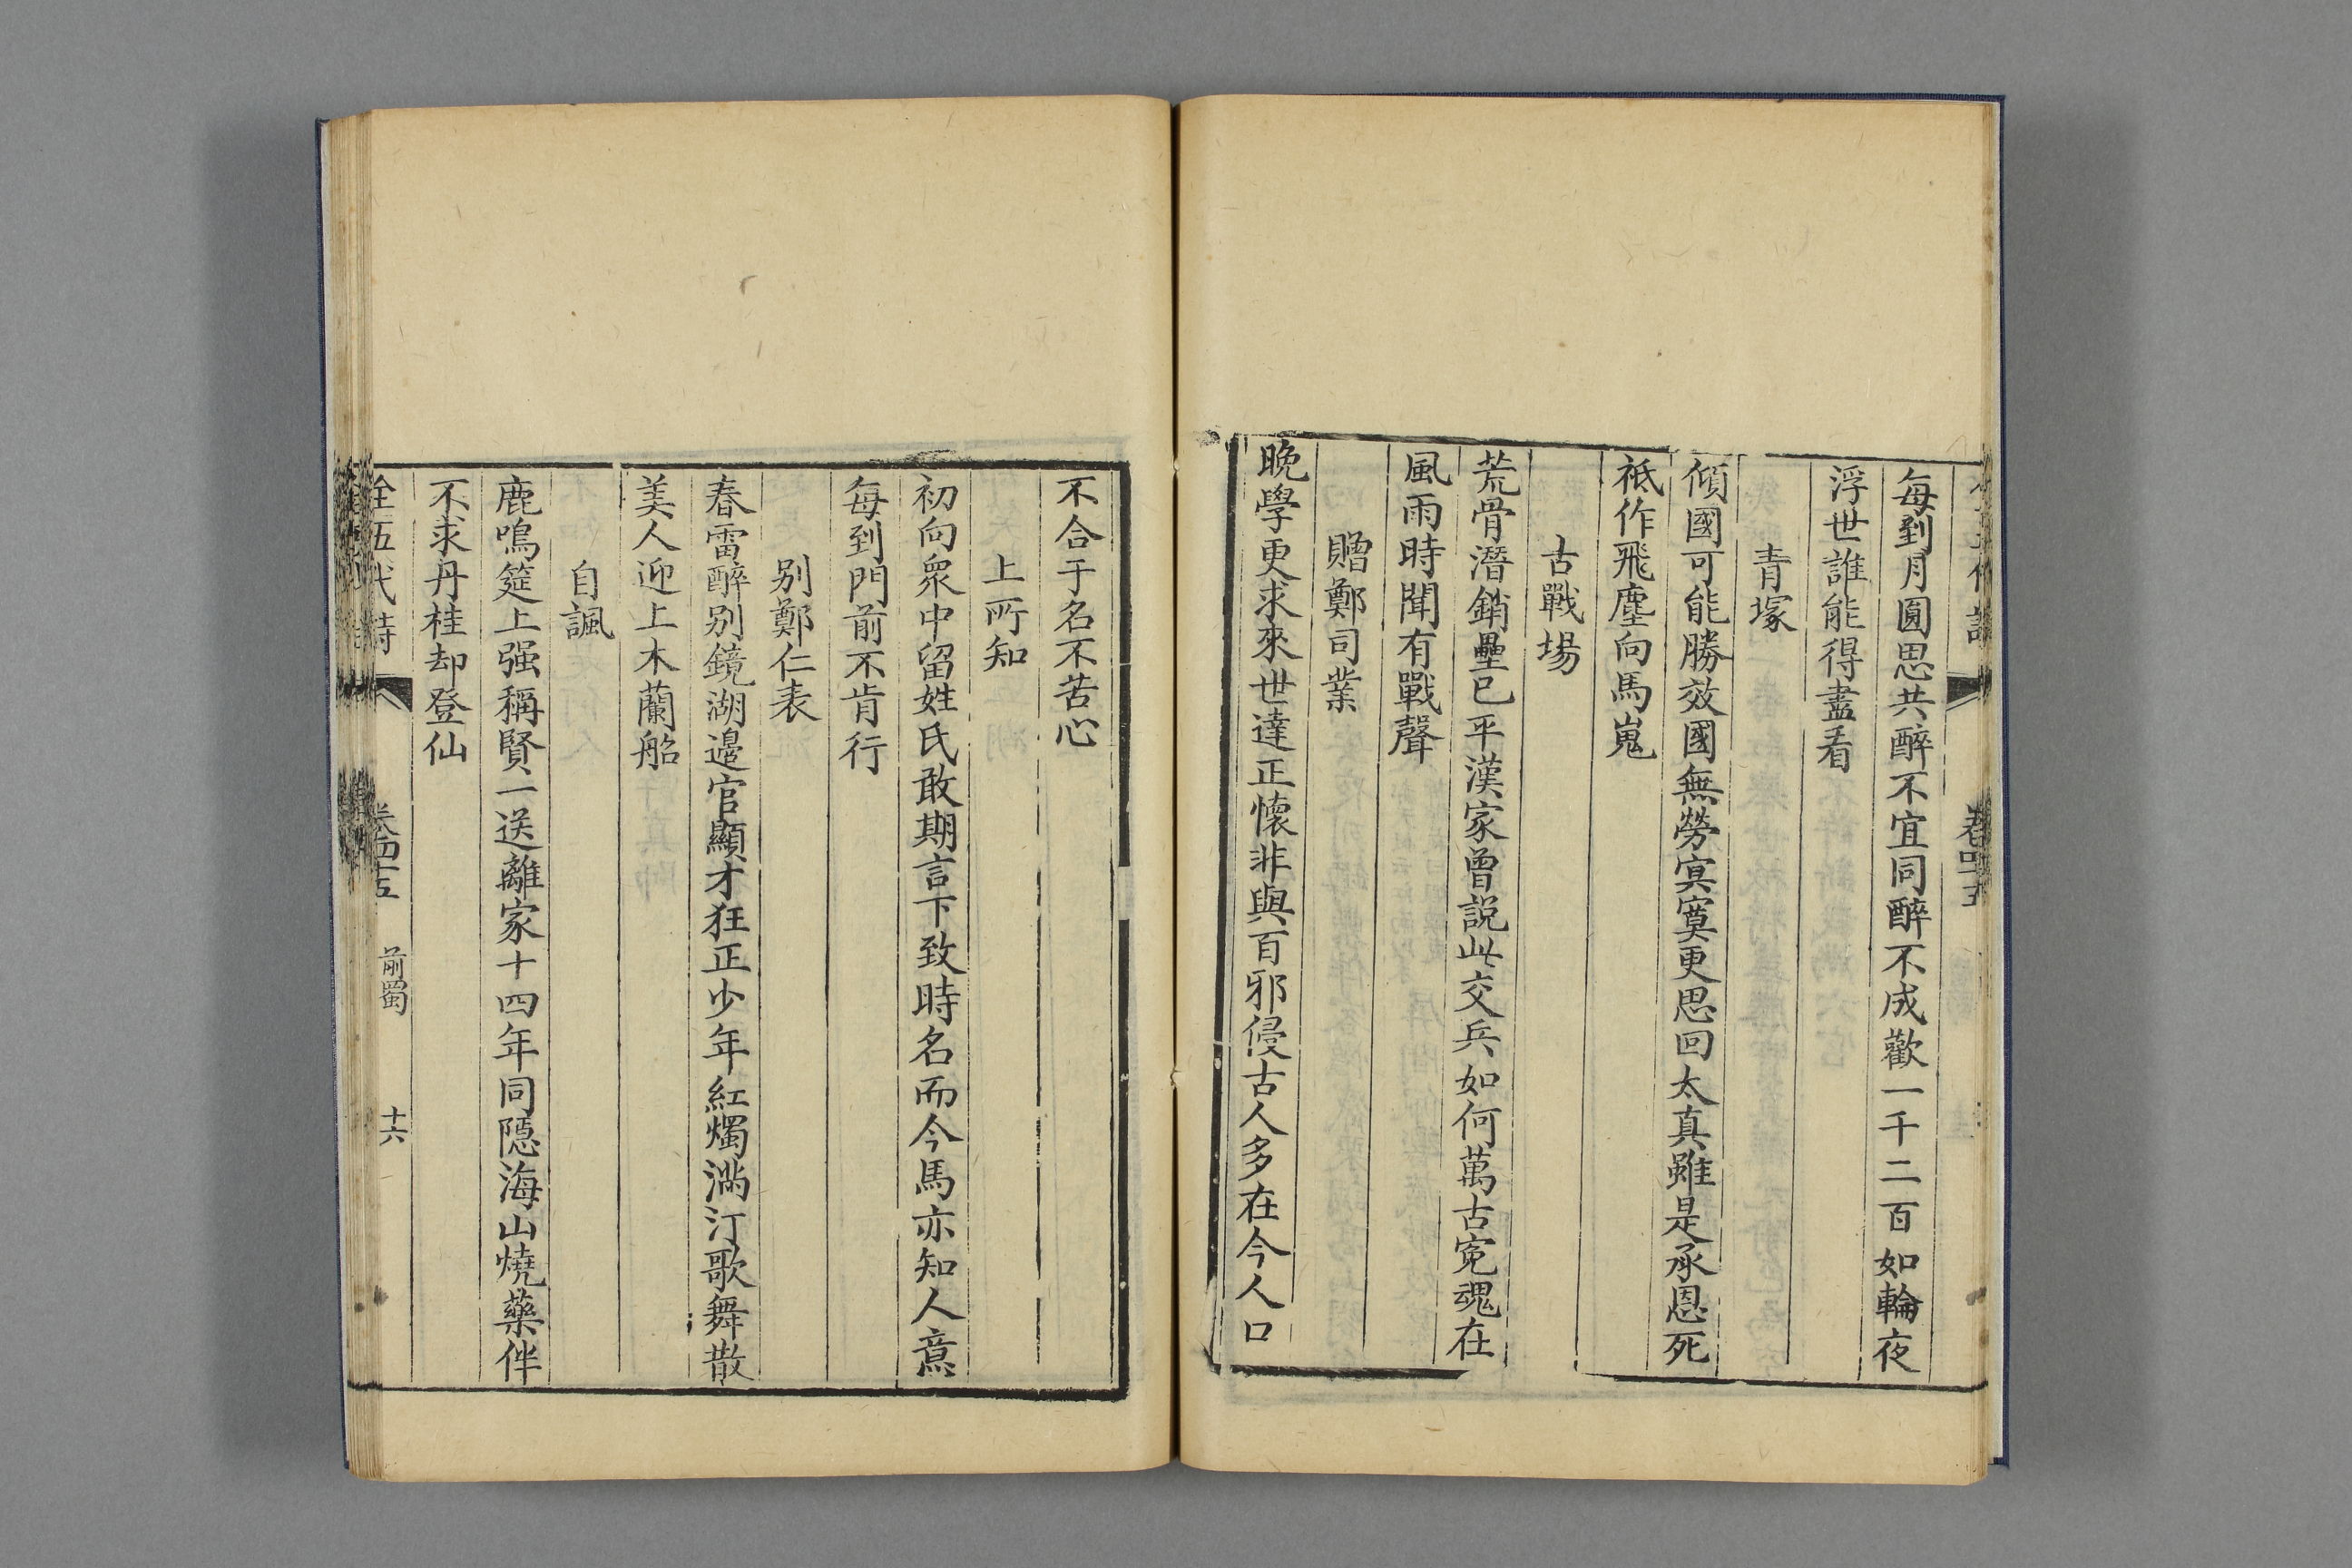 每到月圓思共醉不宜同醉不成歡一千二百如輪夜
浮世誰能得盡看
青塚
傾國可能勝效國無勞冥寞更思回太真雖是承恩死
祗作飛塵向馬嵬
古戰場
荒骨潛銷壘已平漢家曾説此交兵如何萬古寃魂在
風雨時聞有戰聲
贈鄭司業
晚學更求來世達正懷非與百邪侵古人多在今人口
不合于名不苦心
上所知
初向眾中留姓氏敢期言下致時名而今馬亦知人意
每到門前不肯行
别鄭仁表
春雷醉别鏡湖邊官顯才狂正少年紅燭滿汀歌舞散
美人迎上木蘭船
自諷
鹿鳴筵上强稱賢一送離家十四年同隱海山燒藥伴
不求丹桂却登仙
全五代詩 卷四十五 前蜀 十六